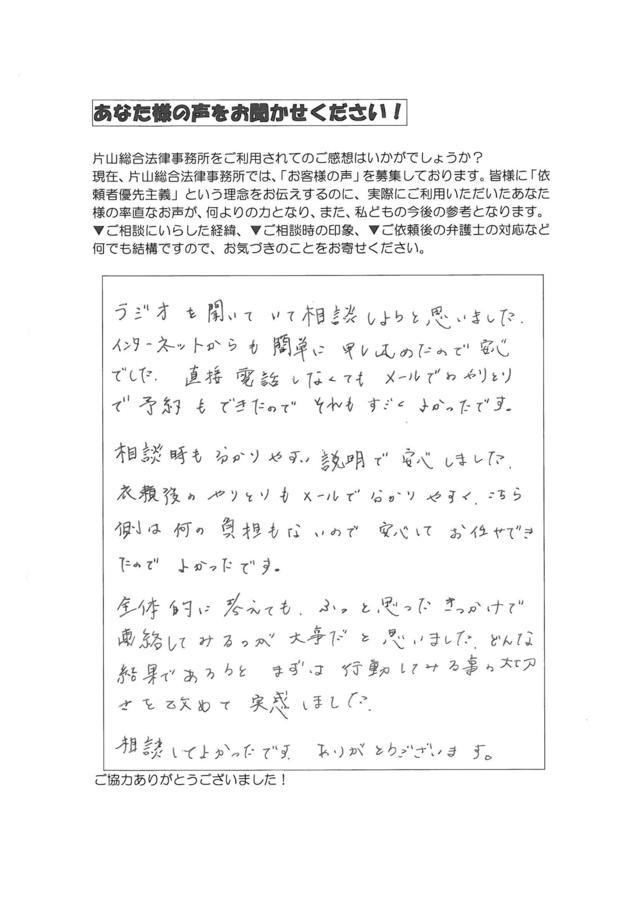 あなた様の声をお聞かせください！
片山総合法律事務所をご利用されてのご感想はいかがでしょうか？
現在、片山総合法律事務所では、「お客様の声」を募集しております。皆様に「依
頼者優先主義」という理念をお伝えするのに、実際にご利用いただいたあなた
様の率直なお声が、何よりの力となり、また、私どもの今後の参考となります。
▼ご相談にいらした経緯、▼ご相談時の印象、▼ご依頼後の弁護士の対応など
何でも結構ですので、お気づきのことをお寄せください。
ラジオを聞いていて相談しようと思いました。
インターネットからも簡単に申し込めたので安心
でした。直接電話しなくてもメールでのやりとり
で予約もできたのでそれもすごくよかったです。
相談時も分かりやすい説明で安心しました。
衣頼後のやりとりもメールで分かりやすく、こちら
側は何の負担もないので安心してお任せでき
たのでよかったです。
全体的に考えても、ふっと思ったきっかけで
連絡してみるのが大事だと思いました。どんな
結果であろうとまずは行動してみる事の大切
さを改めて実感しました。
相談してよかったです。ありがとうございます。
ご協力ありがとうございました！